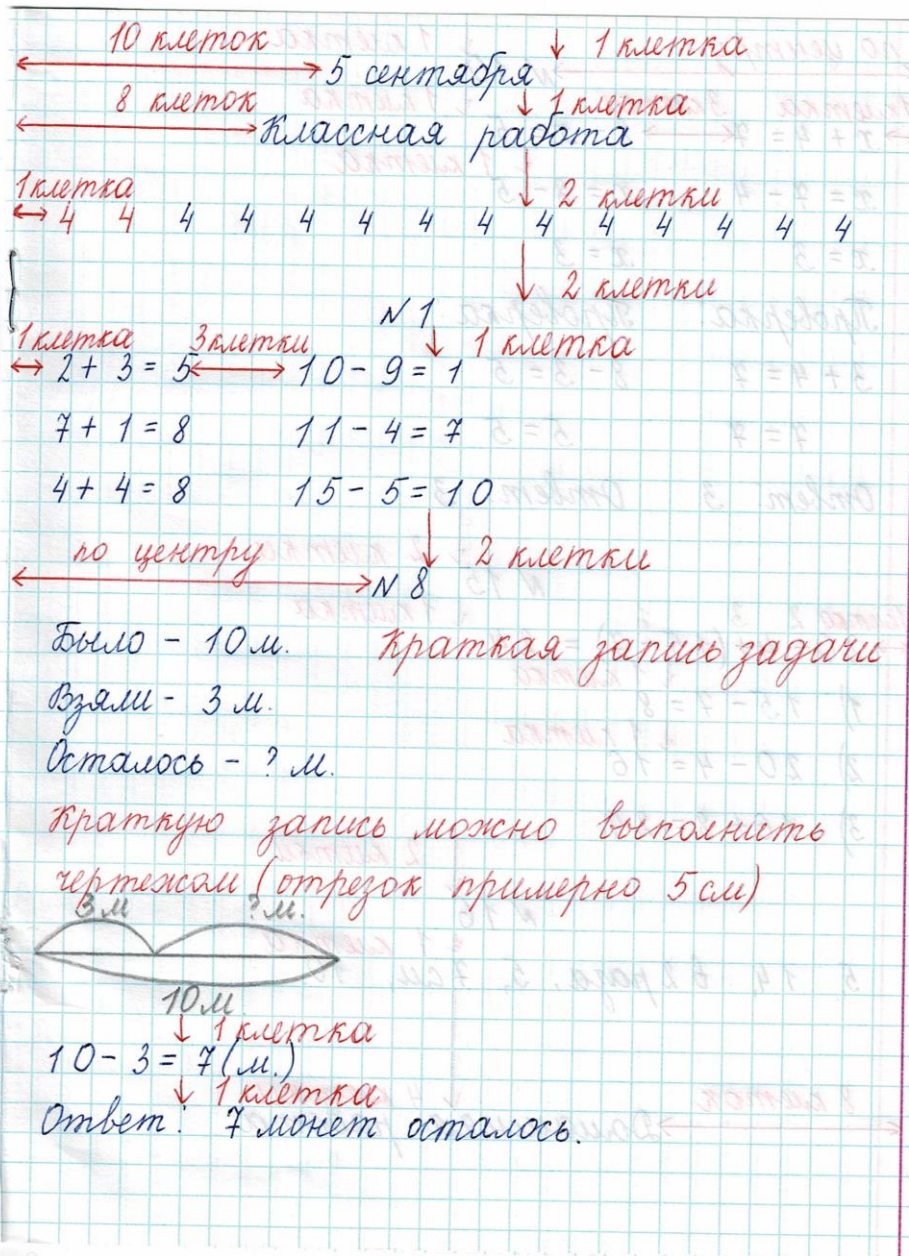 10 клеток ↓ 1 клетка
5 сентября
8 клеток ↓ 1 клетка
Классная работа
1 клетка ↓ 2 клетки
4 4 4 4 4 4 4 4 4 4 4 4 4 4
↓ 2 клетки
№ 1
1 клетка 3 клетки ↓ 1 клетка
2 + 3 = 5 10 - 9 = 1
7 + 1 = 8 11 - 4 = 7
4 + 4 = 8 15 - 5 = 10
по центру ↓ 2 клетки
№ 8
Было - 10 м. Краткая запись задачи
Взяли - 3 м.
Осталось - ? м.
Краткую запись можно выполнить
чертежом (отрезок примерно 5 см)
3 м ? м.
10 м.
↓ 1 клетка
10 - 3 = 7 (м.)
↓ 1 клетка
Ответ: 7 монет осталось.